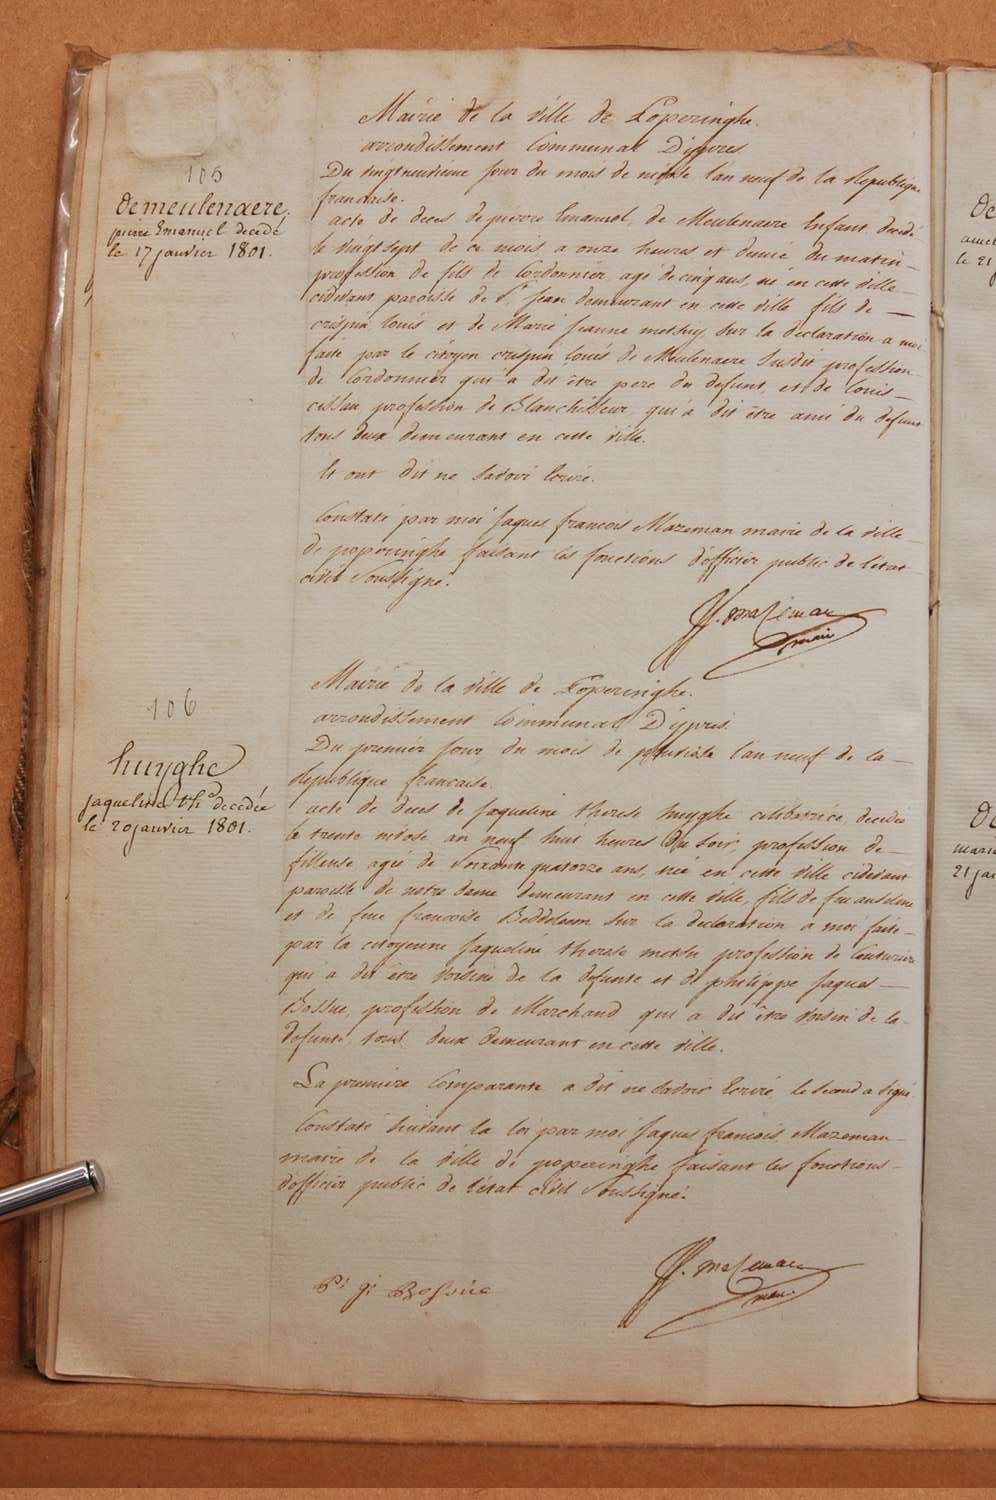 105
Demeulenaere.
pierre Emanuel decedé
le 17 janvier 1801.
Mairié de la ville de Poperinghe.
arrondissement Communal D'ypres
Du vingtneuvieme jour du mois de nivose l'an neuf de la Republique
francaise.
acte de deces de pierre Emanuel de Meulenaere Enfant decedé
le vingtsept de ce mois, a onze heures et demie du matin —
profession de fils de Cordonnier, agé de cinq ans, né en cette ville —
cidevant paroisse de St Jean demeurant en cette ville fils de —
crispin louis et de Marie Jeanne methuy sur la declaration a moi
faite par le citoyen crispin louis de Meulenaere susdit profession
de Cordonnier qui a dit être pere du defunt, et de louis —
cissau profession de Blanchisseur, qui a dit être ami du defunt
tous deux demeurant en cette ville.
ils ont dit ne savoir Ecrire.
Constaté par moi Jaques francois Mazeman maire de la ville —
de poperinghe faisant les fonctions d'officier public de l'etat
civil Soussigné.
JJ. mazeman
maire
106
huyghe
jaqueline thse decedée
le 20 janvier 1801.
Mairié de la ville de Poperinghe.
arrondissement Communal D'ypres.
Du premier jour du mois de pluviose l'an neuf de la —
Republique francaise.
acte de deces de Jaqueline therese huyghe celibatrice, decedée
le trente nivose an neuf huit heures du soir, profession de —
filleuse agée de Soixante quatorze ans, née en cette ville cidevant
paroisse de notre dame demeurant en cette ville, fils de feu anselme
et de feue francoise sur la declaration a moi faite —
par la citoyenne Jaqueline therese profession de Couturiere
qui a dit être voisine de la defunte et de philippe Jaques —
Bossue, profession de Marchand qui a dit être voisin de la —
defunte, tous deux demeurant en cette ville.
La premiere Comparante a dit ne savoir Ecrire, le second a signé
Constaté suivant la loi par moi Jaques francois Mazeman —
maire de la ville de poperinghe faisant les fonctions —
d'officier public de l'état civil Soussigné.
JJ. mazeman
maire.
P: j: Bossüe